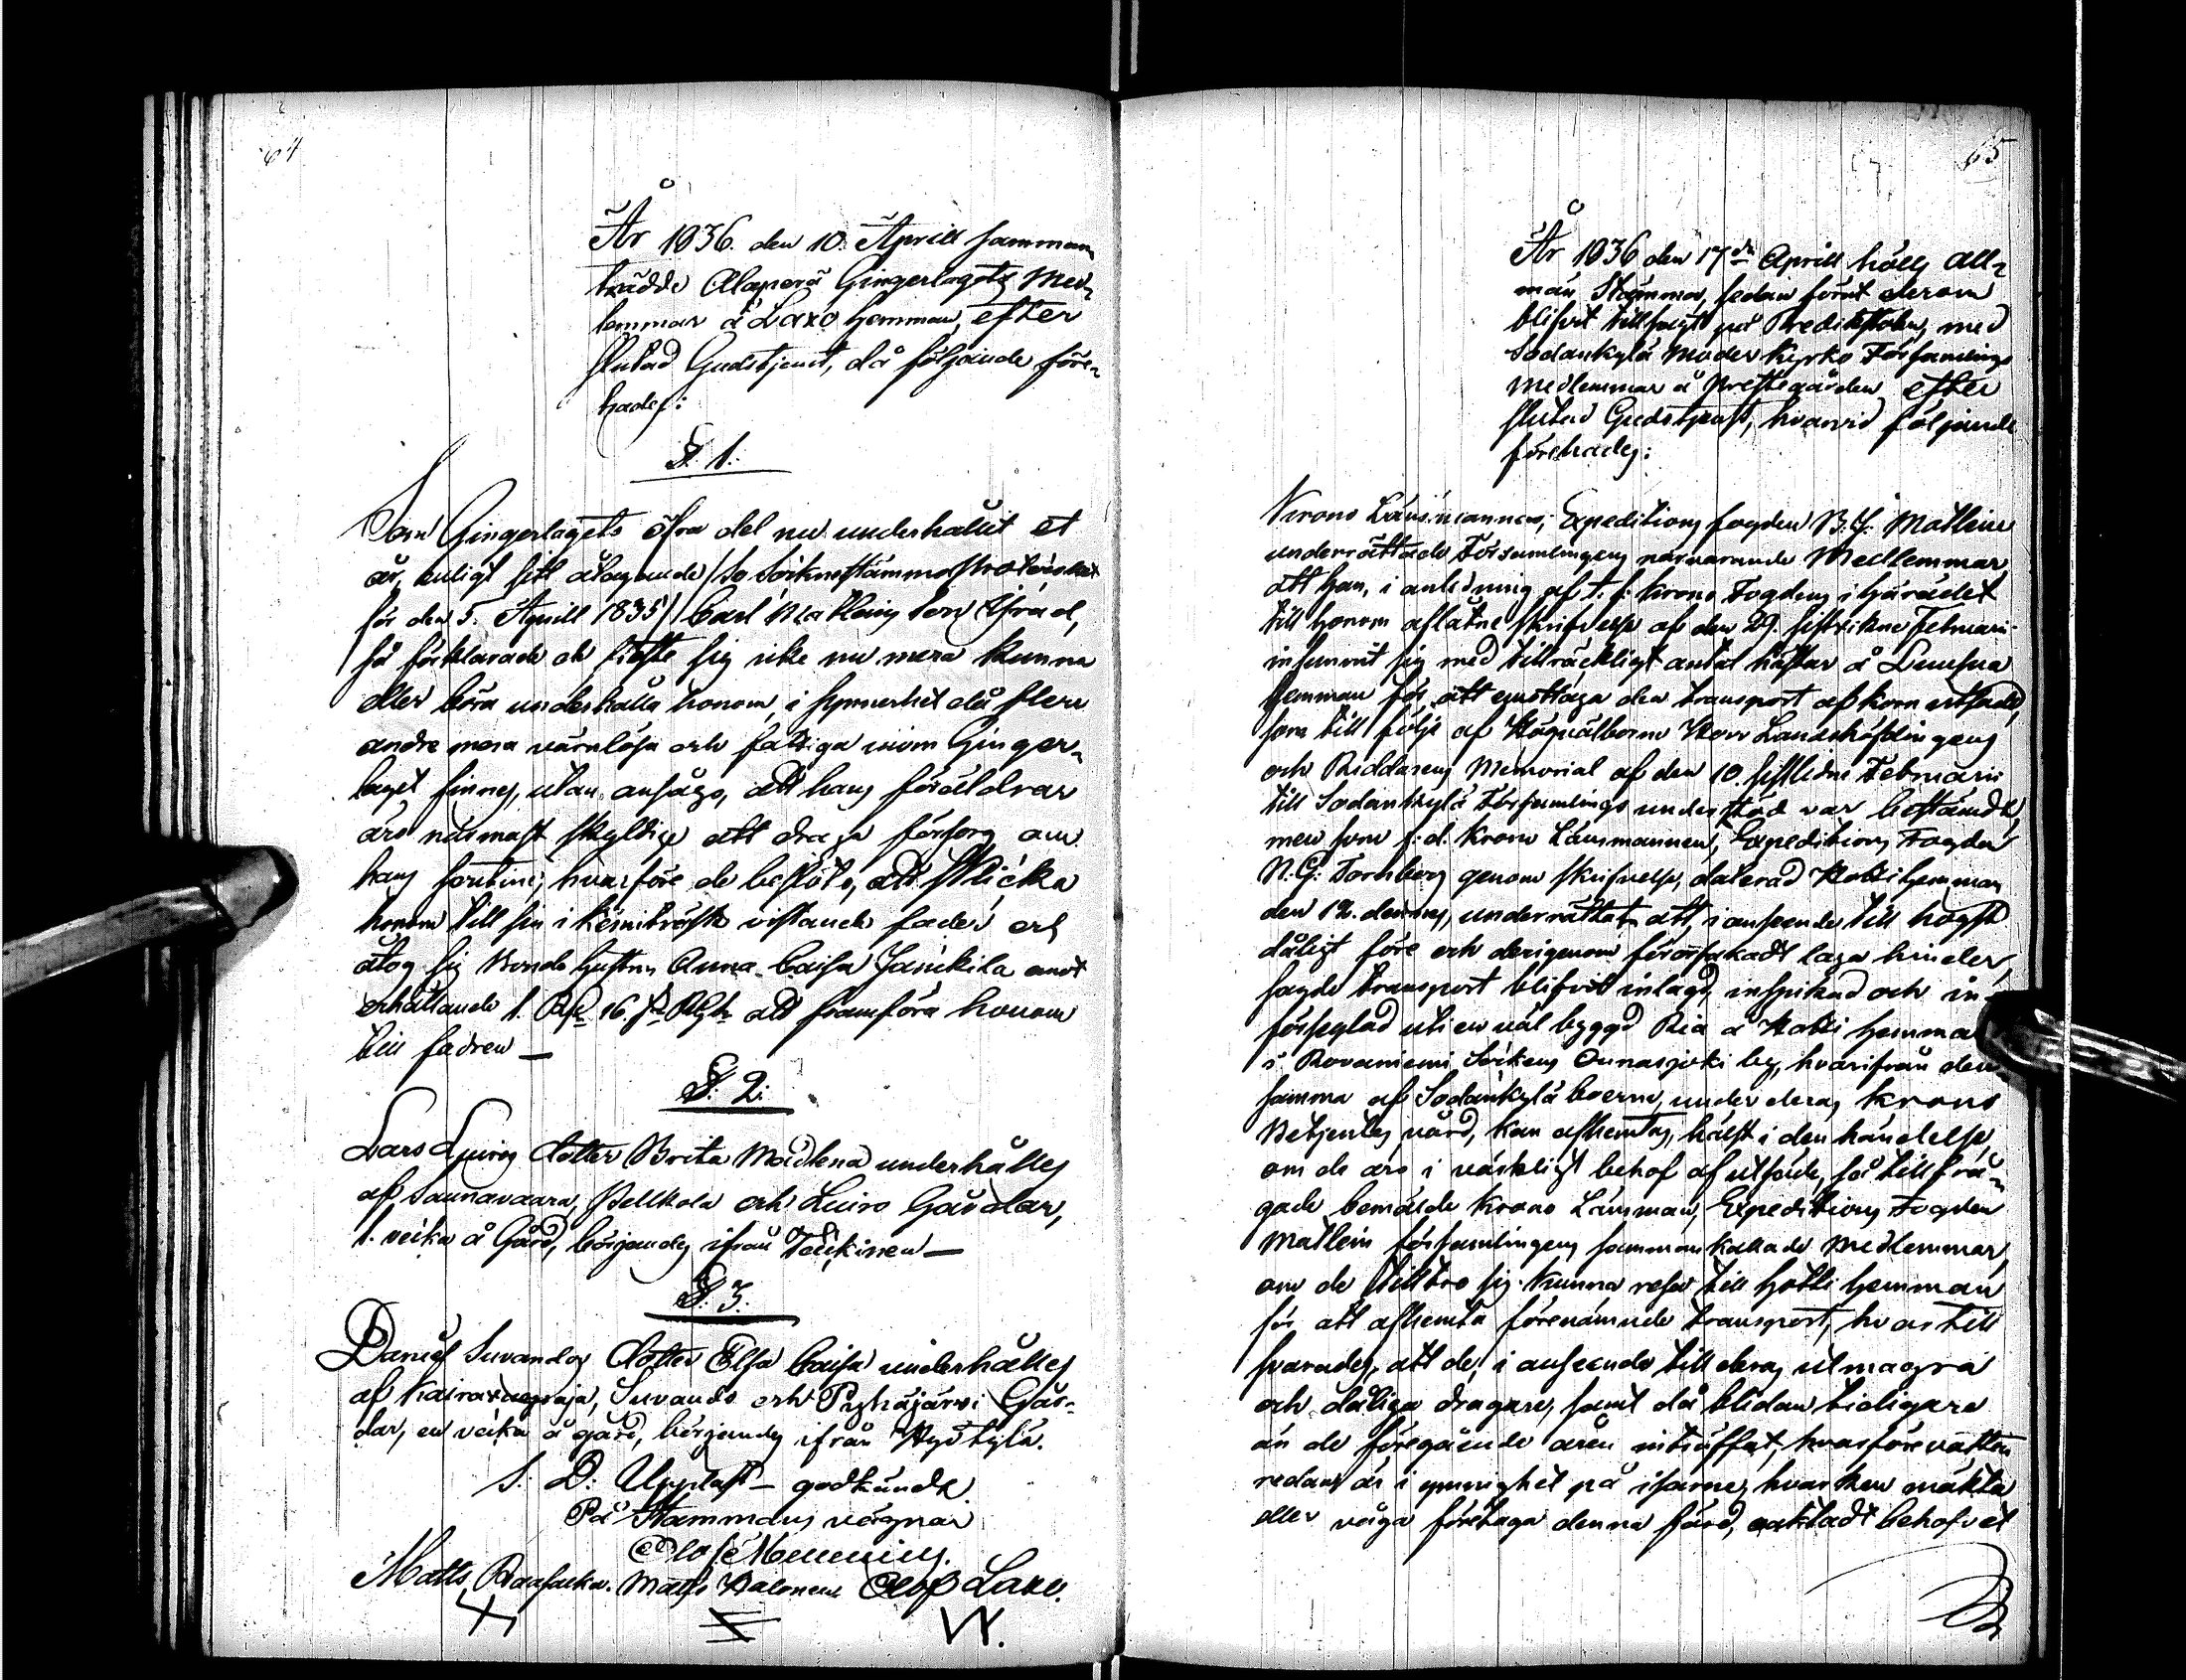 64
År 1836. den 10. Aprill samman-
trädde Alaperä Gingerlagets Med-
lemmar å Laxo hemman, efter
slutad Gudstjenst, då följande före-
hades:
§. 1.
Som Gingerlagets öfra del nu underhållit et
år, enligt sitt åtagande /: So Soknestämmo
för den 5. Aprill 1835 :/ Carl son Ifrael,
så förklarade de sig icke nu mera kunna
eller böra underhålla honom, i synnerhet då flere
andre mera värnlösa och fattiga inom Ginger-
laget finnes, utan ansågo, att hans föräldrar
äro närmast skyldige att draga försorg om
hans , hvarföre de beslöto, att skicka
honom till sin i Kemiträsk vistande fader och
åtog sig Bonde hustrun Anna Caisa mot
erhållande 1. 16. att framföra honom
till fadren —
§. 2.
Lars Luiros dotter Brita Madlena underhålles
af Saunavaara, Pelkola och Luiro Gårdar,
1. vecka å Gård, börjandes ifrån
§. 3.
Daniel Suvandos dotter Elsa Caisa underhålles
af , Suvando och Pyhäjärvi Går-
dar, en vecka å gård, börjandes ifrån Hyötylä.
S. D. Uppläst — godkändt.
På Stämmans vägnar
Matts . Mats Olof Laxo.
65
År 1836 den 17de Aprill hölls All-
män Stämma, sedan förut derom
blifvit tillsagt på Predikstolen, med
Sodankylä Moder Kyrko Församlings
Medlemmar å Prestegården efter
slutad Gudstjenst, hvarvid följande
förehades:
Krono Länsmannen, Expeditions fogden B. J. Matlein
underrättade Församlingens närvarande Medlemmar,
att han, i anledning af t. f. Krono Fogdens i häradet
till honom aflåtne skrifvelse af den 29. sistvikne Februari
infunnit sig med tillräckligt antal hästar å
hemman för att emottaga den transport af korn utsäde,
som till följe af Högvälborne Herr Landshöfdingens
och Riddarens Memorial af den 10. sistlidne Februarii
till Sodankylä Församlings understöd var bestämdt,
men som f. d. Krono Länsmannen, Expeditions Fogden
N. G. Fornberg genom skrifvelse, daterad Hotti hemman
den 12. dennes, underrättat att, i anseende till högst
dåligt före och derigenom förorsakadt laga hinder,
sagde transport blifvit inlagd, inspikad och in-
förseglad uti en väl byggd Ria å Hotti hemman
i Rovaniemi Sockens Ounasjoki by, hvarifrån den-
samma af Sodankylä boerne, under deras krono
Betjentes vård, kan afhemtas, hälst i den händelse,
om de äro i värkligt behof af utsäde, så tillfrå-
gade bemälde Krono Länsman, Expeditions Fogden
Matlein församlingens sammankallade Medlemmar,
om de tilltro sig kunna resa till Hotti hemman
för att afhemta förenämnde transport, hvartill
svarades, att de, i anseende till deras utmagra
och dåliga dragare, samt då blidan tidigare
än de föregående åren inträffat, hvarföre vatten
redan är i ymnighet på isarne, hvarken mäkta
eller våga företaga denna färd, oaktadt behofvet